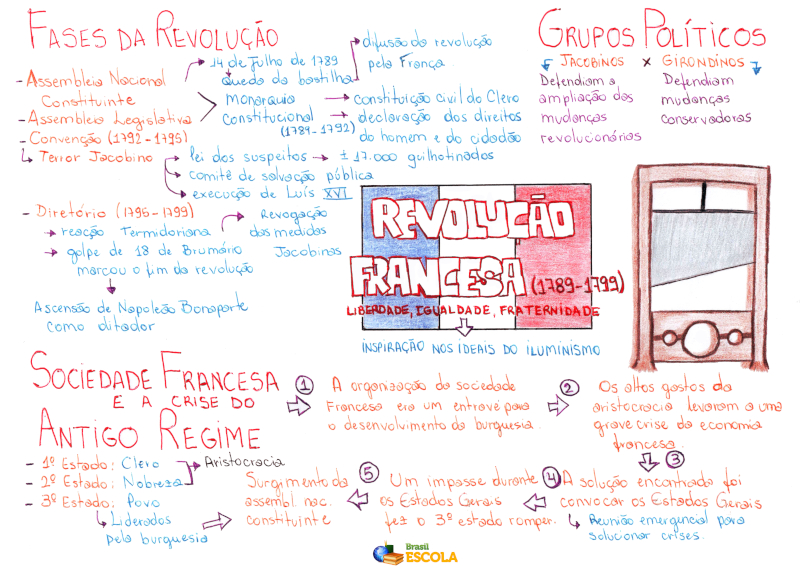 FASES DA REVOLUÇÃO
- Assembleia Nacional
Constituinte
- Assembleia Legislativa
- Convenção (1792-1795)
↳ Terror Jacobino
14 de Julho de 1789
queda da bastilha
difusão da revolução
pela França.
Monarquia
Constitucional
(1789-1792)
constituição civil do Clero
declaração dos direitos
do homem e do cidadão
lei dos suspeitos → ± 17.000 guilhotinados
comitê de salvação pública
execução de Luís XVI
- Diretório (1795-1799)
→ reação Termidoriana
→ golpe de 18 de Brumário
marcou o fim da revolução
Revogação
das medidas
Jacobinas
Ascensão de Napoleão Bonaparte
como ditador
GRUPOS POLÍTICOS
JACOBINOS x GIRONDINOS
Defendiam a
ampliação das
mudanças
revolucionárias
Defendiam
mudanças
conservadoras
REVOLUÇÃO
FRANCESA (1789-1799)
LIBERDADE, IGUALDADE, FRATERNIDADE
INSPIRAÇÃO NOS IDEAIS DO ILUMINISMO
SOCIEDADE FRANCESA
E A CRISE DO
ANTIGO REGIME
- 1º Estado: Clero
- 2º Estado: Nobreza
- 3º Estado: Povo
Aristocracia
↳ Liderados
pela burguesia
1
A organização da sociedade
Francesa era um entrave para
o desenvolvimento da burguesia.
2
Os altos gastos da
aristocracia levaram a uma
grave crise da economia
francesa.
3
A solução encontrada foi
convocar os Estados Gerais
↳ Reunião emergencial para
solucionar crises.
4
Um impasse durante
os Estados Gerais
fez o 3º estado romper.
5
Surgimento da
assembl. nac.
constituinte
Brasil
ESCOLA